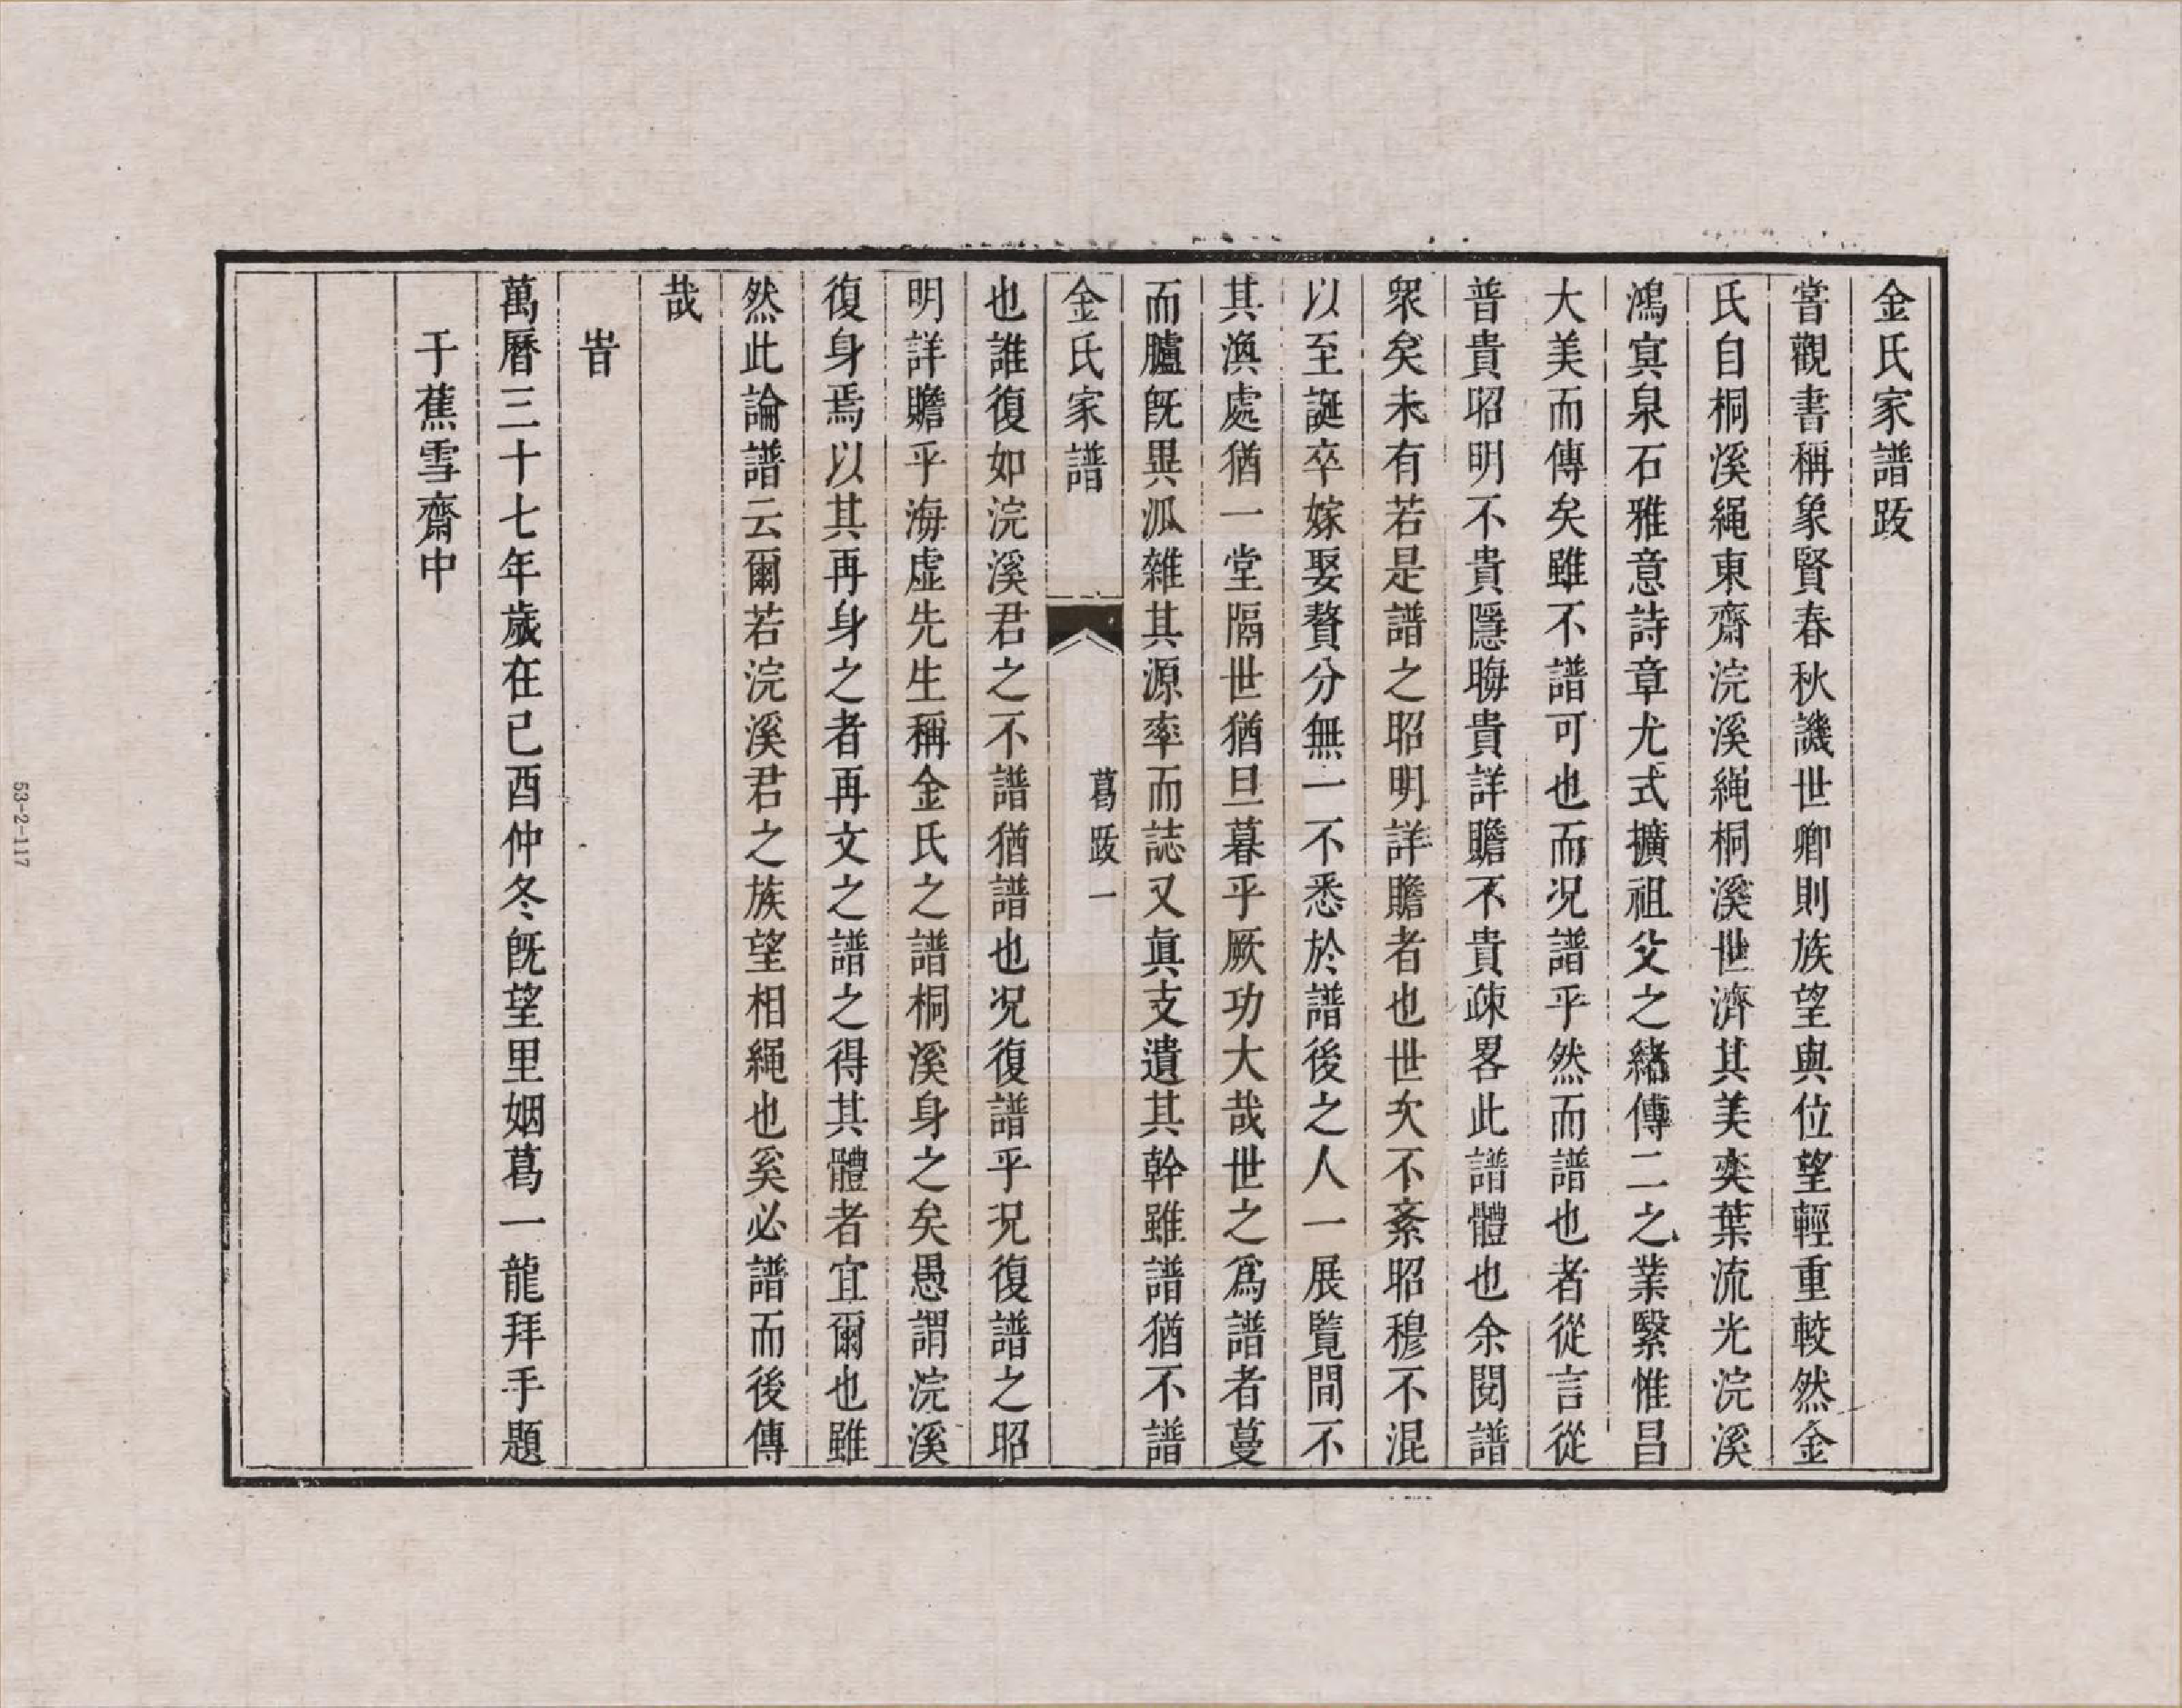 金氏家譜跋
嘗觀書稱象賢春秋譏世卿則族望與位望輕重較然金
氏自桐溪繩東齋浣溪繩桐溪世濟其美奕葉流光浣溪
鴻寘泉石雅意詩章尤式擴祖父之緒傳二之業繄惟昌
大美而傳矣雖不譜可也而况譜乎然而譜也者從言從
普貴昭明不貴隱晦貴詳贍不貴疎畧此譜體也余閱譜
眾矣未有若是譜之昭明詳贍者也世次不紊昭穆不混
以至誕卒嫁娶贅分無一不悉於譜後之人一展覽間不
其渙處猶一堂隔世猶旦暮乎厥功大哉世之爲譜者蔓
而臚旣異泒雜其源率而誌又眞支遺其幹雖譜猶不譜
金氏家譜
葛跋一
也誰復如浣溪君之不譜猶譜也况復譜乎况復譜之昭
明詳贍乎海虛先生稱金氏之譜桐溪身之矣愚謂浣溪
復身焉以其再身之者再文之譜之得其體者宜爾也雖
然此論譜云爾若浣溪君之族望相繩也奚必譜而後傳
哉
旹
萬曆三十七年歲在己酉仲冬旣望里姻葛一龍拜手題
于蕉雪齋中
53-2-117